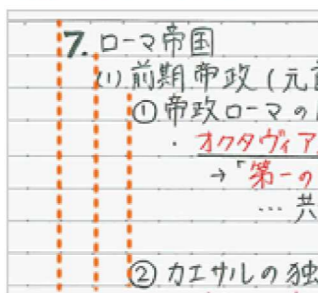 7. ローマ帝国
(1) 前期帝政(元
① 帝政ローマの
・オクタヴィア
→「第一の
… 共
② カエサルの独